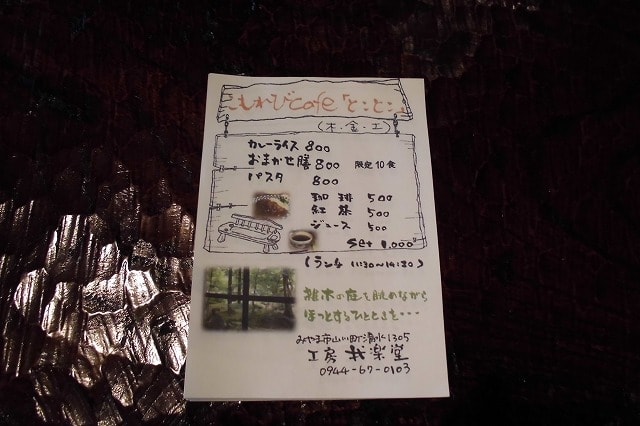 こもれびcafe「とことこ」
(木・金・土)
カレーライス 800
おまかせ膳 800 限定10食
パスタ 800
珈琲 500
紅茶 500
ジュース 500
set 1,000
(ランチ 11:30〜14:30)
雑木の庭を眺めながら
ほっとするひとときを・・・
みやま市山川町清水1305
工房 我楽堂
0944-67-0103